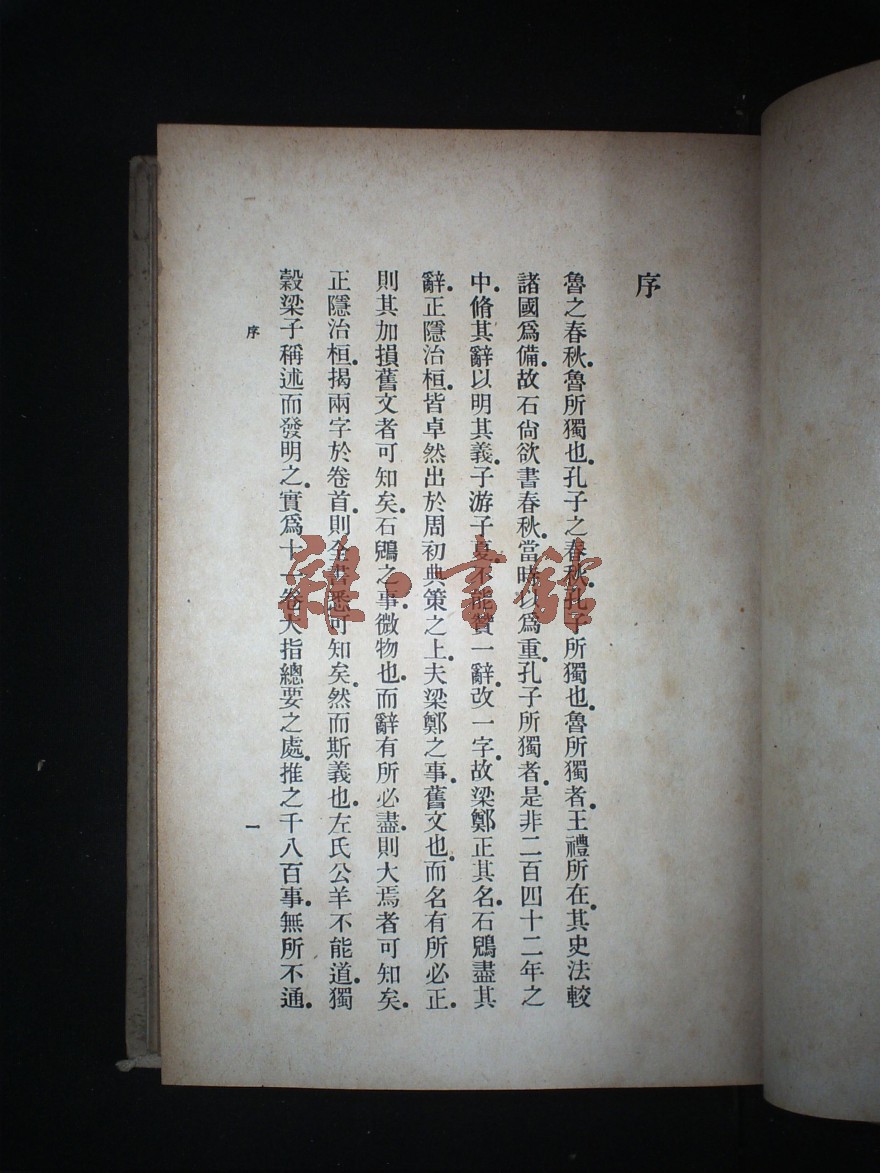 序
魯之春秋。魯所獨也。孔子之春秋。孔子所獨也。魯所獨者。王禮所在。其史法較
諸國爲備。故石尙欲書春秋。當時以爲重。孔子所獨者。是非二百四十二年之
中。脩其辭以明其義。子游子夏。不能贊一辭。改一字。故梁鄭正其名。石鶂盡其
辭。正隱治桓。皆卓然出於周初典策之上。夫梁鄭之事。舊文也。而名有所必正。
則其加損舊文者可知矣。石鶂之事。微物也。而辭有所必盡。則大焉者可知矣。
正隱治桓。揭兩字於卷首。則全書悉可知矣。然而斯義也。左氏公羊不能道。獨
穀梁子稱述而發明之。實爲十一卷大指總要之處。推之千八百事。無所不通。
序
一
雜·書館